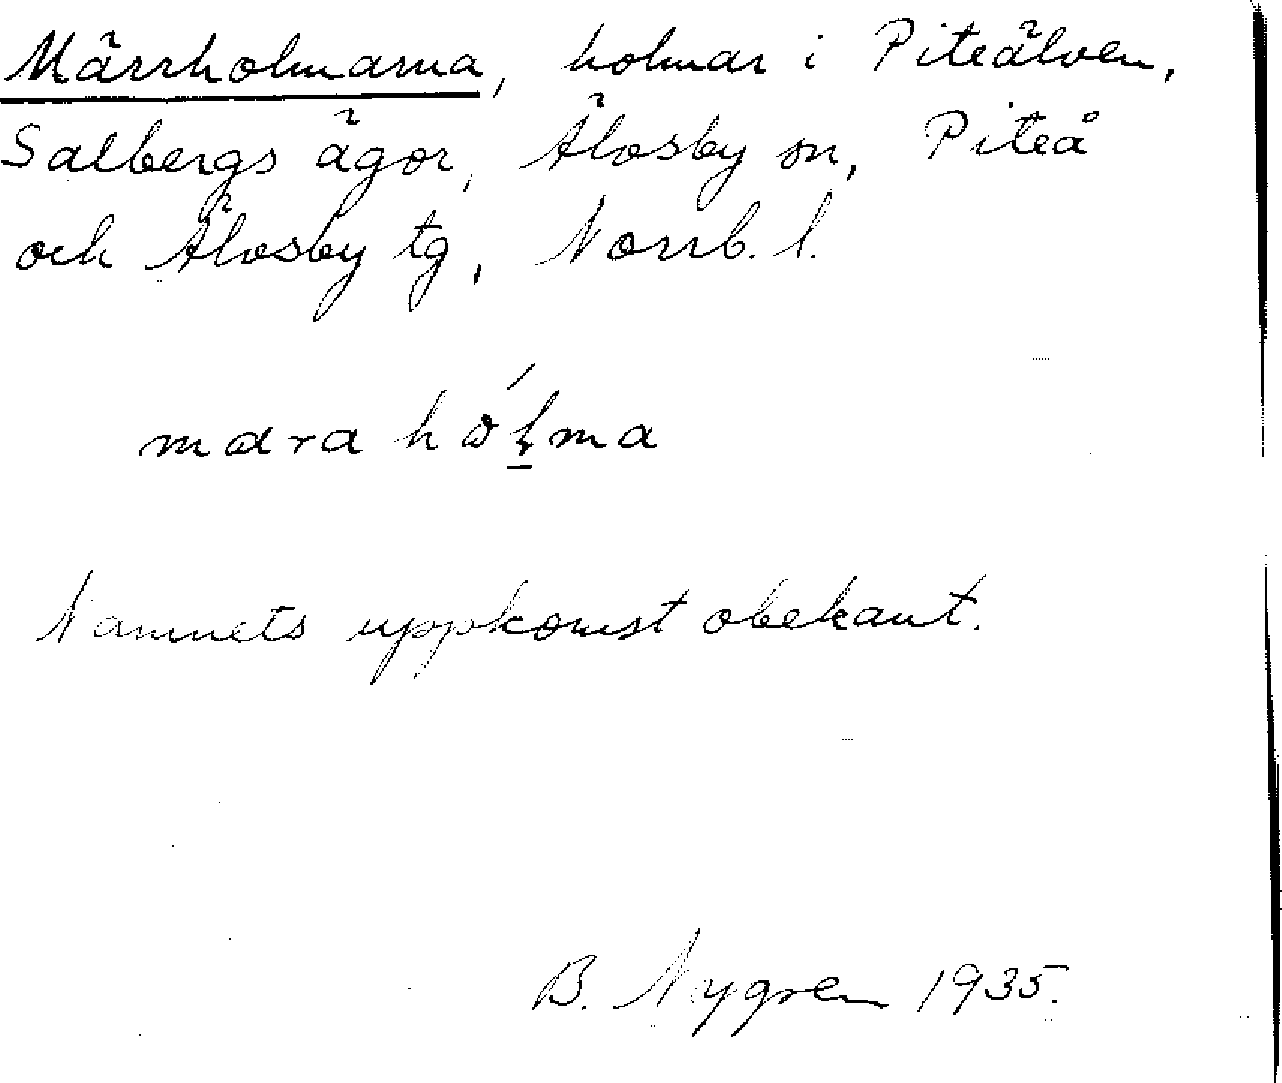 Märrholmarna, holmar i Piteälven,
Salbergs ägor, Älvsby sn, Piteå
och Älvsby tg, Norrb. l.
mara hó̵l̠ma
Namnets uppkomst obekant.
B. Nygren 1935.